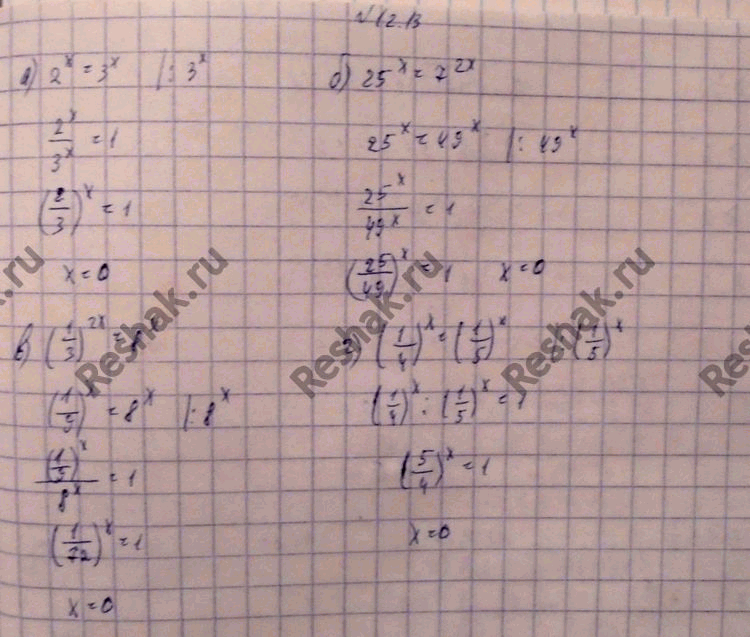 №12.13
а) 2^x = 3^x |: 3^x
2^x/3^x = 1
(2/3)^x = 1
x = 0
б) 25^x = 7^2x
25^x = 49^x |: 49^x
25^x/49^x = 1
(25/49)^x = 1 x = 0
в) (1/3)^2x = 8^x
(1/9)^x = 8^x |: 8^x
(1/9)^x/8^x = 1
(1/72)^x = 1
x = 0
г) (1/4)^x = (1/5)^x : (1/5)^x
(1/4)^x : (1/5)^x = 1
(5/4)^x = 1
x = 0
Reshak.ru
Reshak.ru
Reshak.ru